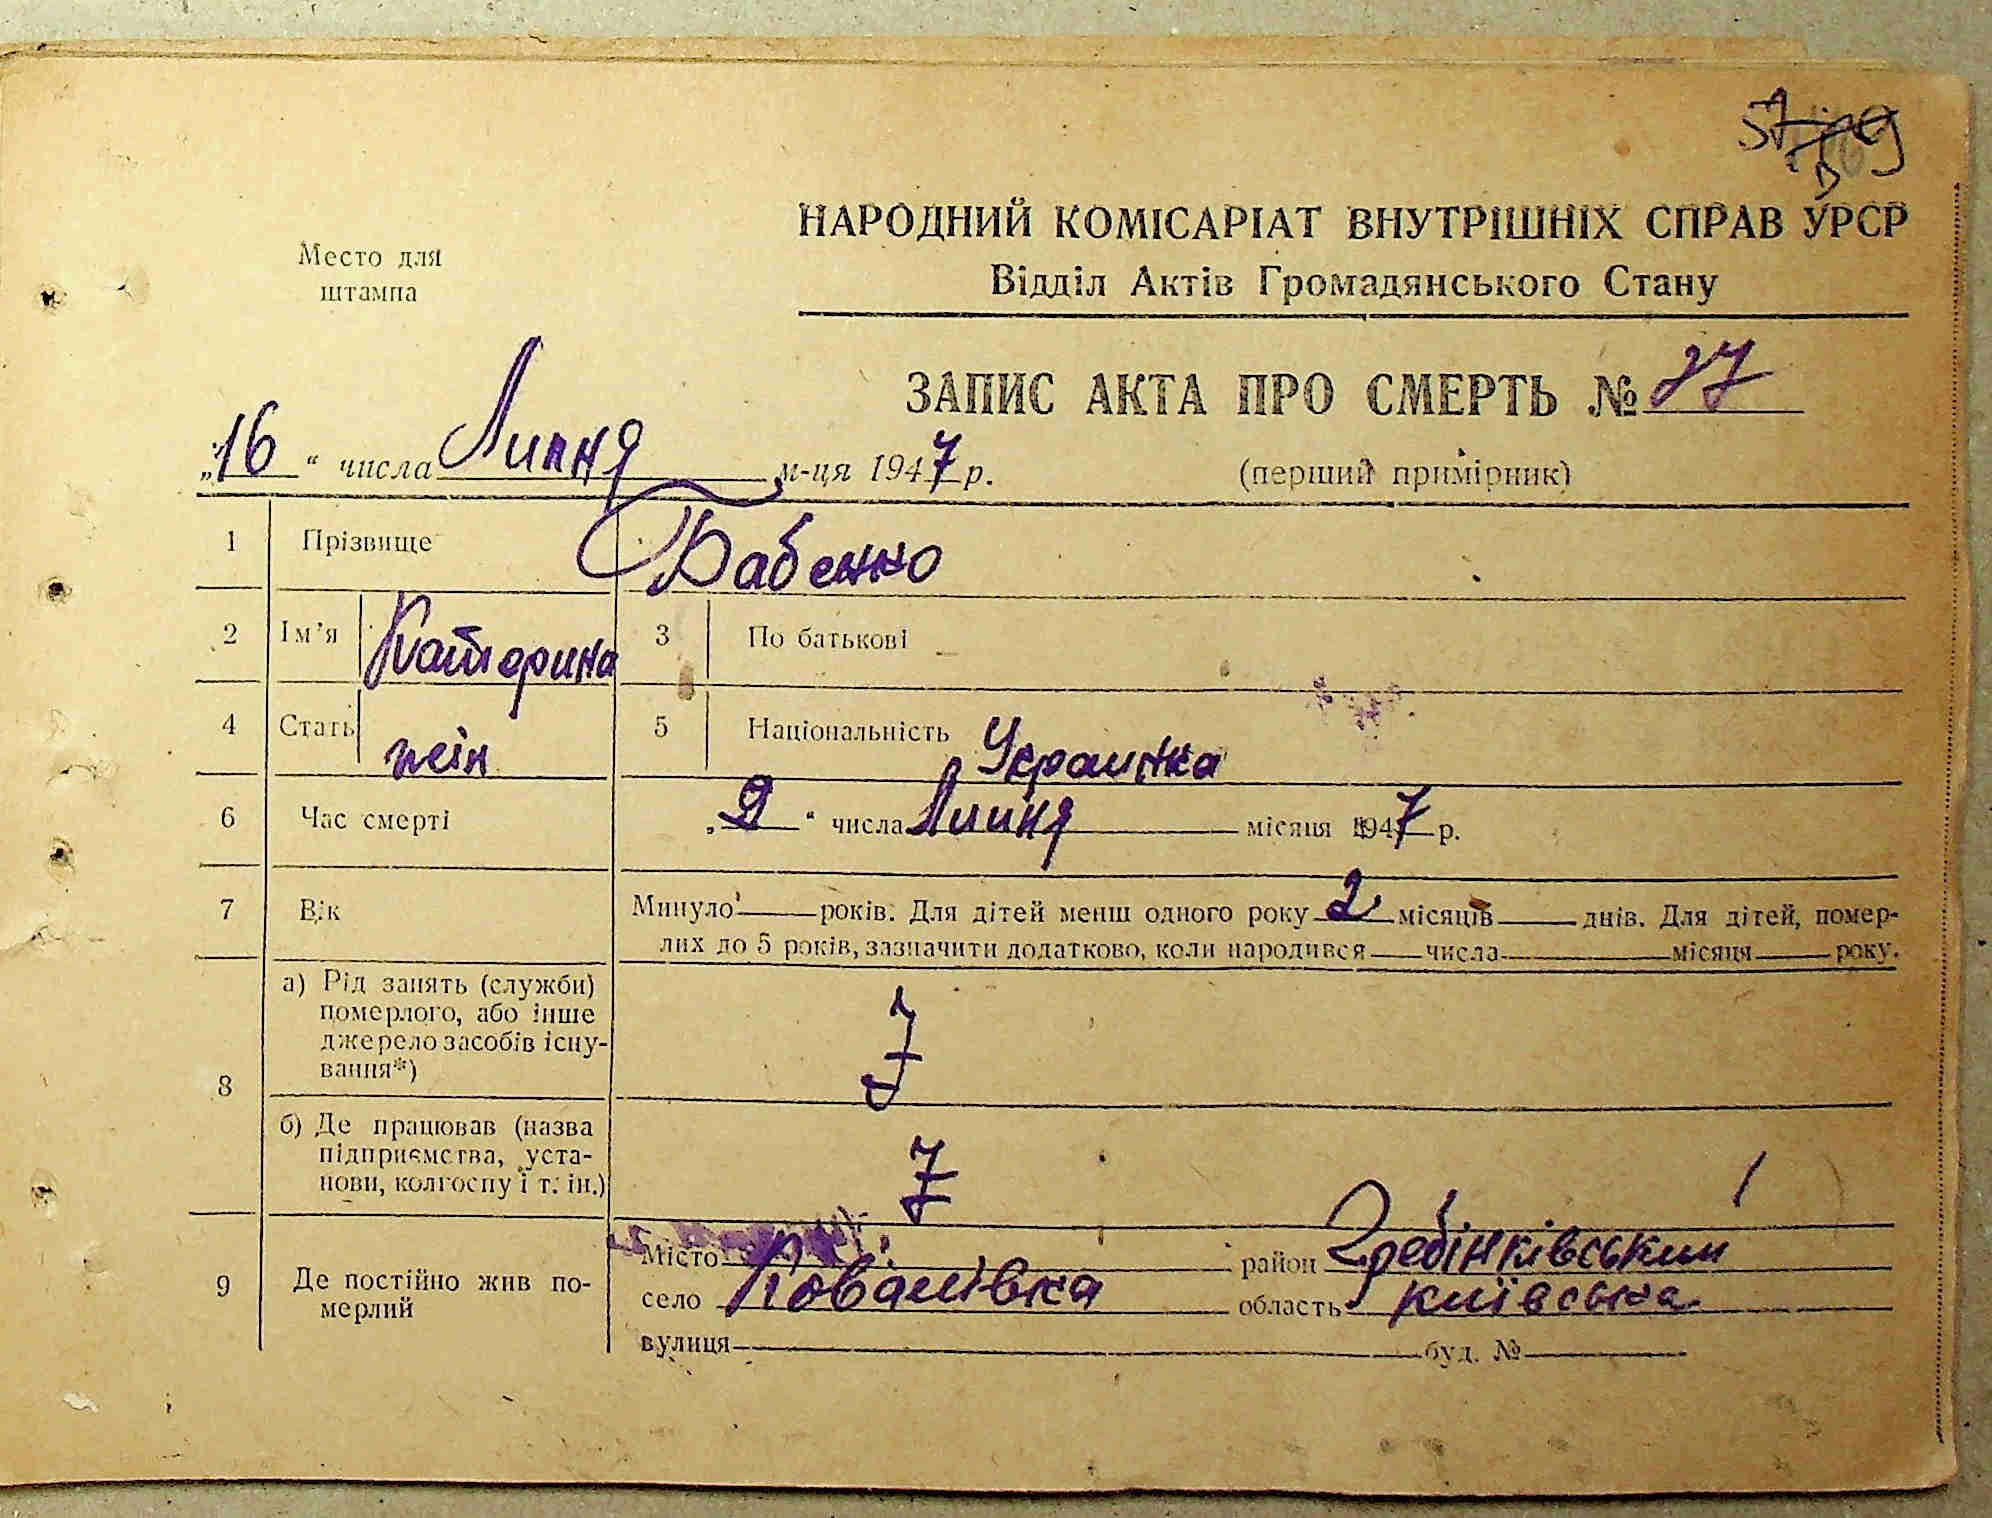 НАРОДНИЙ КОМІСАРІАТ ВНУТРІШНІХ СПРАВ УРСР
Відділ Актів Громадянського Стану
Место для
штампа
ЗАПИС АКТА ПРО СМЕРТЬ № 27
„16“ числа Липня м-ця 1947 р.
(перший примірник)
1 Прізвище Бабенко
2 Ім'я Катерина 3 По батькові
4 Стать жін 5 Національність Украинка
6 Час смерті „9“ числа Липня місяця 1947 р.
7 Вік Минуло — років. Для дітей менш одного року 2 місяців — днів. Для дітей, помер-
лих до 5 років, зазначити додатково, коли народився — числа — місяця — року.
8 а) Рід занять (служби)
померлого, або інше
джерело засобів існу-
вання*)
б) Де працював (назва
підприємства, уста-
нови, колгоспу і т. ін.)
9 Де постійно жив по-
мерлий
Місто район Гребінківський
село Ковалівка область київська
вулиця буд. №